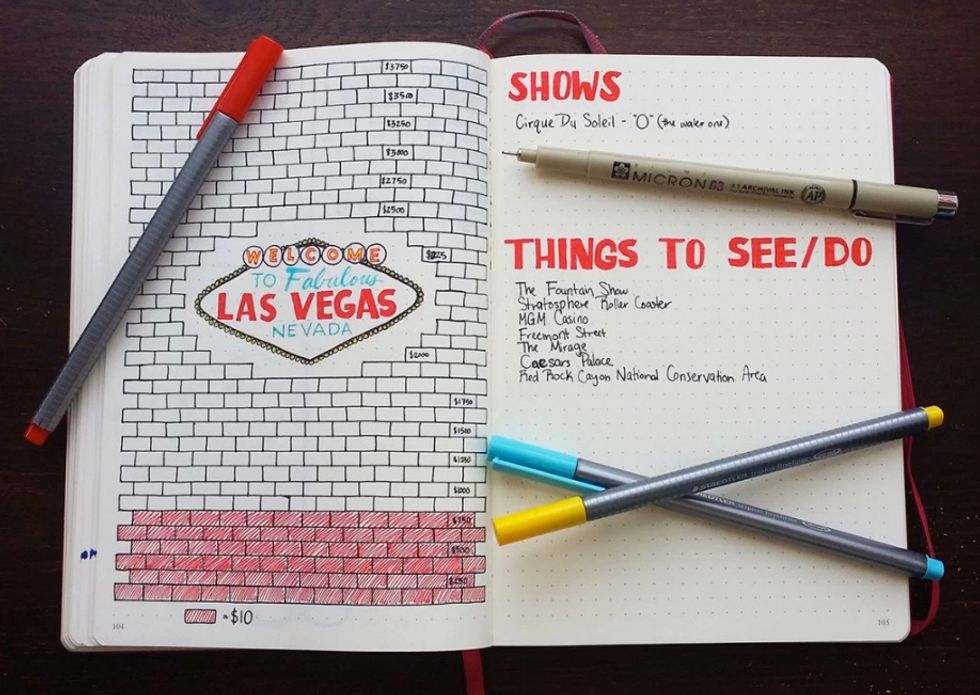 $3750
$3500
$3250
$3000
$2750
$2500
$225
WELCOME
TO Fabulous
LAS VEGAS
NEVADA
$2000
$1750
$1500
$1250
$1000
$750
$500
$250
= $10
104
SHOWS
Cirque Du Soleil - "O" (the water one)
MICRON 03
ARCHIVAL INK
AP
THINGS TO SEE/DO
The Fountain Show
Stratosphere Roller Coaster
MGM Casino
Freemont Street
The Mirage
Caesars Palace
Red Rock Cayon National Conservation Area
STAEDTLER triplus fineliner
STAEDTLER triplus fineliner
105